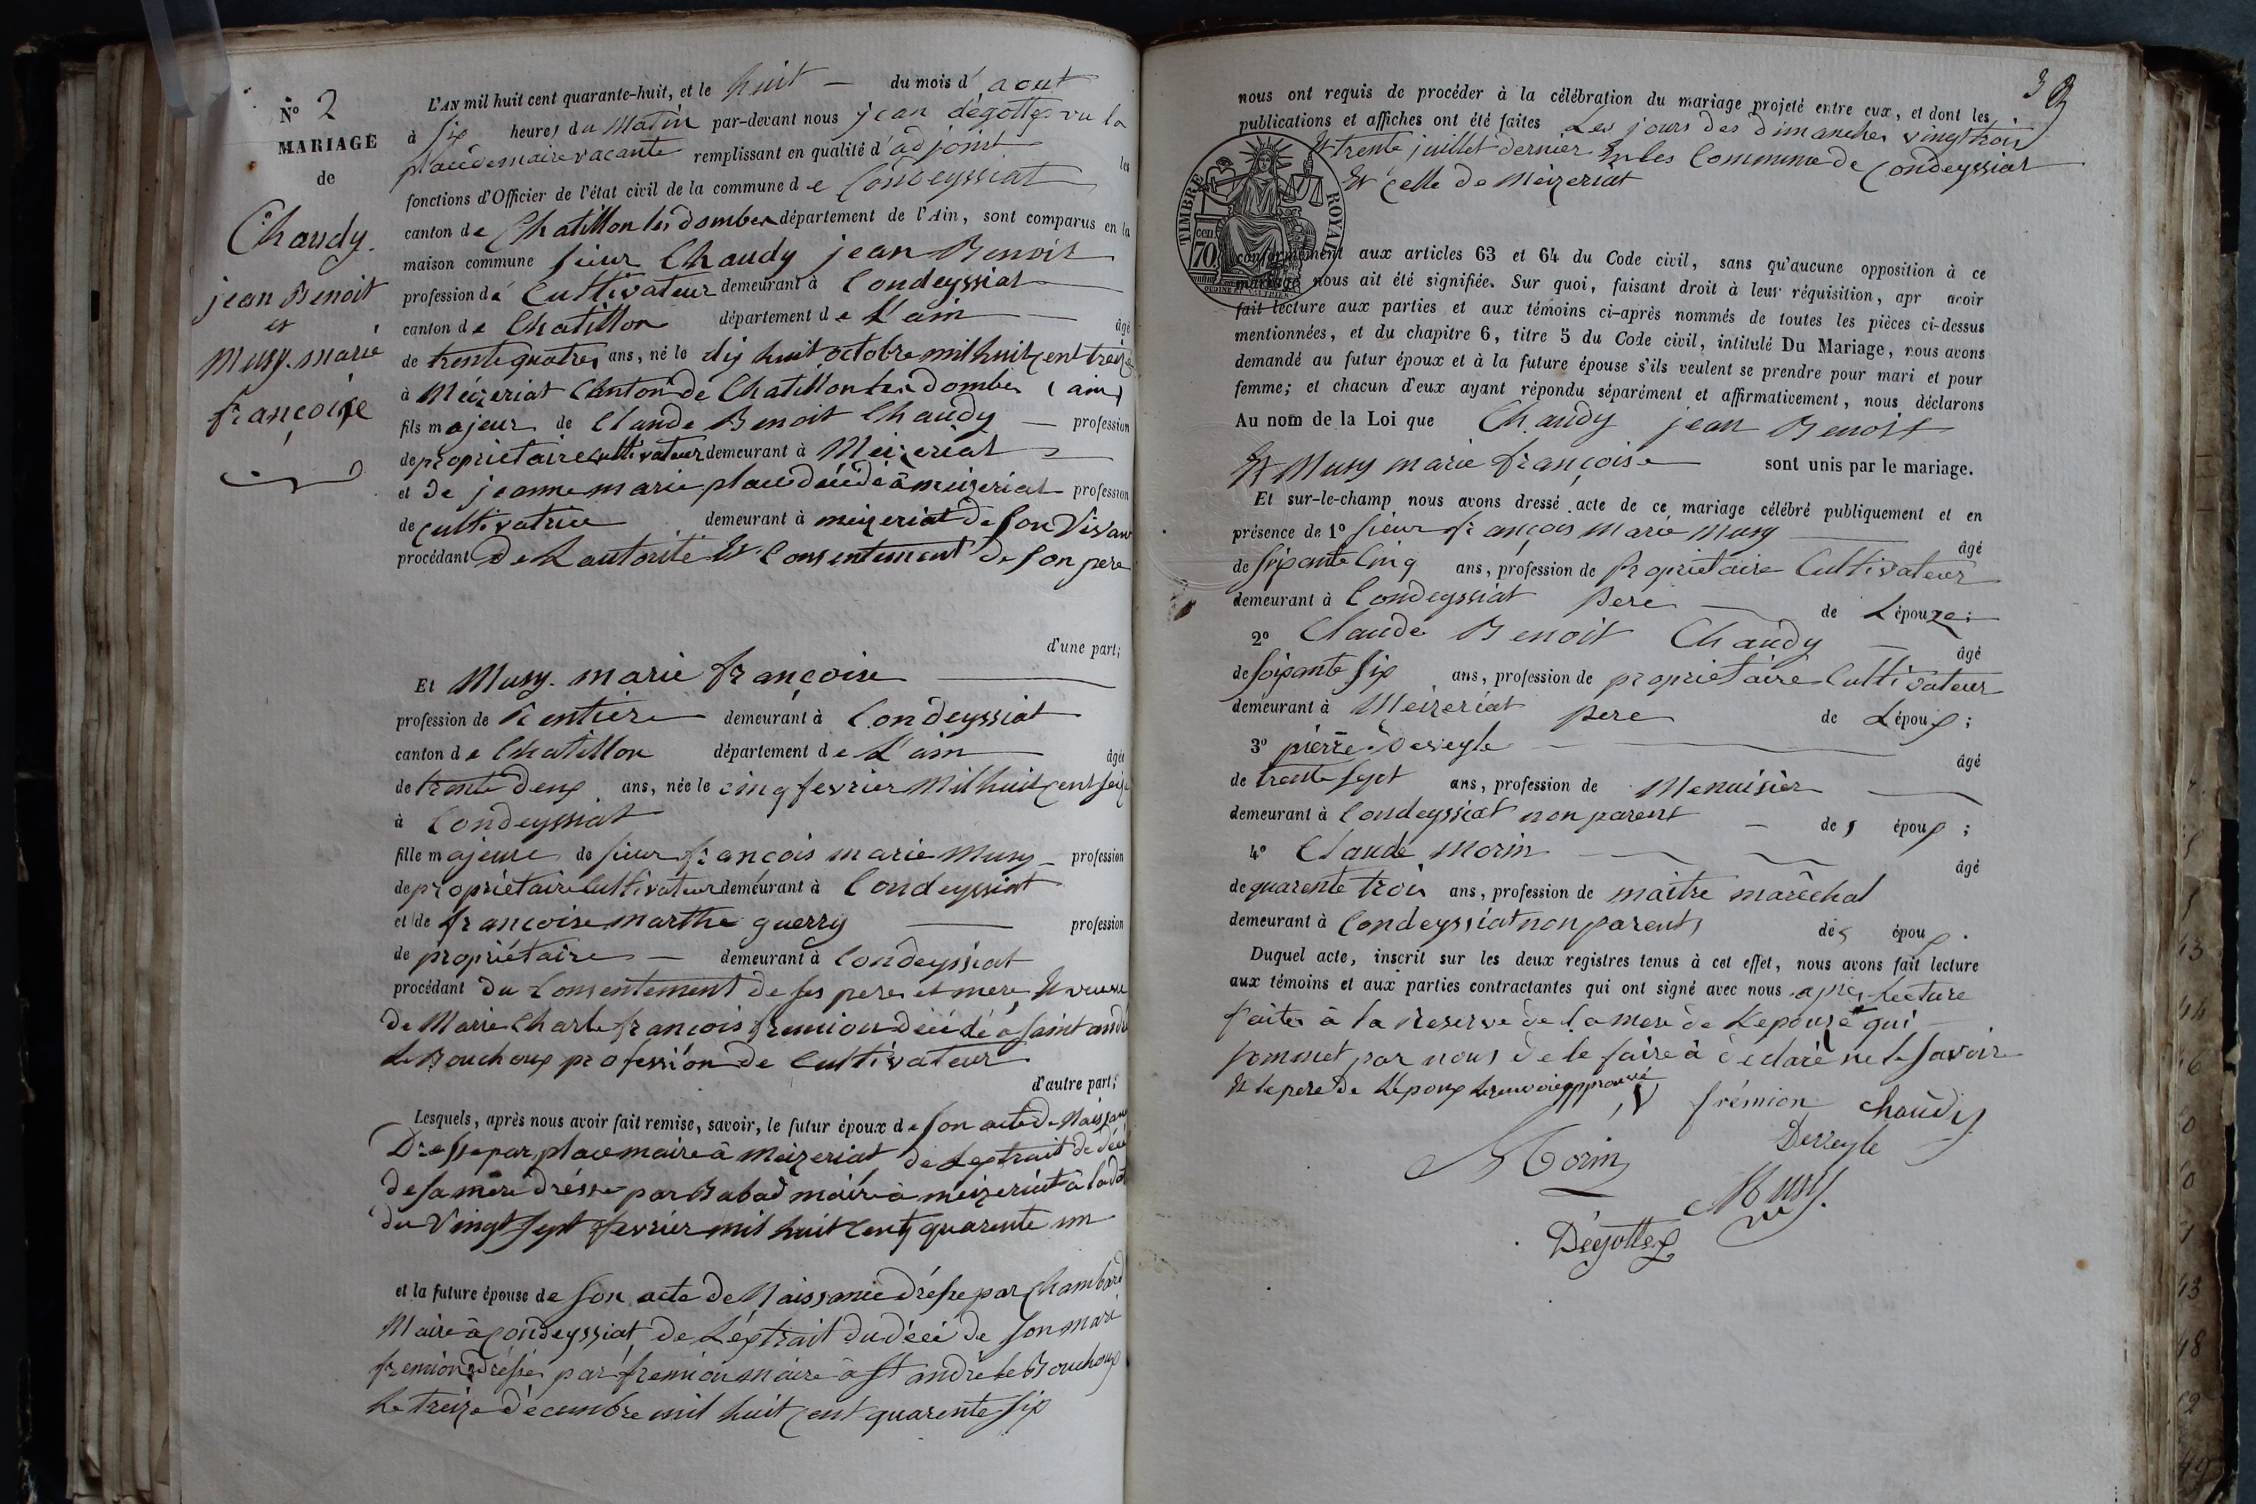 N° 2
MARIAGE
de
Chaudy
jean Benoit
et
Musy. marie
françoise
L'AN mil huit cent quarante-huit, et le huit — du mois d'aout
à six heures du Matin par-devant nous jean dégottex vu la
place de maire vacante remplissant en qualité d'adjoint les
fonctions d'Officier de l'état civil de la commune de Condeyssiat
canton de Chatillon les dombes département de l'Ain, sont comparus en la
maison commune sieur Chaudy jean Benoit
profession de Cultivateur demeurant à Condeyssiat
canton de Chatillon département de L'ain — âgé
de trente quatres ans, né le dix huit octobre mil huit cent treize
à Mézeriat Canton de Chatillon les dombes (ain)
fils majeur de Claude Benoit Chaudy — profession
de proprietaire cultivateur demeurant à Meizeriat
et de jeanne marie place décédé à meizeriat profession
de cultivatrice demeurant à meizeriat de son vivant
procédant de L'autorité Et Consentement de son pere
d'une part;
Et Musy. marie françoise
profession de Rentière demeurant à Condeyssiat
canton de Chatillon département de L'ain âgée
de trente deux ans, née le cinq fevrier mil huit cent seize
à Condeyssiat
fille majeure de sieur françois marie Musy — profession
de propriétaire Cultivateur demeurant à Condeyssiat
et de francoise marthe guerry profession
de propriétaire — demeurant à Condeyssiat
procédant du Consentement de ses pere et mere, Et veuve
de Marie Charle françois fremion décédé à saint andré
le Bouchoux profession de cultivateur
d'autre part;
Lesquels, après nous avoir fait remise, savoir, le futur époux de son acte de Naissance
Dresse par place maire à Meizeriat de Lextrait de décé
de sa mere dréssé par Babad maire à meizeriat à la date
du Vingt sept fevrier mil huit cent quarente un
et la future épouse de son acte de Naissance dréssé par Chambard
Maire à Condeyssiat, de Léxtrait du décé de son mari
fremion dréssé par fremion maire à St andré le Bouchoux
Le treize décembre mil huit cent quarente six
39
nous ont requis de procéder à la célébration du mariage projeté entre eux, et dont les
publications et affiches ont été faites Les jours des dimanches vingt trois
Et trente juillet dernier En les Commune de Condeyssiat
Et celle de Meizeriat
TIMBRE ROYAL
70 cen.
conformément aux articles 63 et 64 du Code civil, sans qu'aucune opposition à ce
mariage nous ait été signifiée. Sur quoi, faisant droit à leur réquisition, apr avoir
fait lecture aux parties et aux témoins ci-après nommés de toutes les pièces ci-dessus
mentionnées, et du chapitre 6, titre 5 du Code civil, intitulé Du Mariage, nous avons
demandé au futur époux et à la future épouse s'ils veulent se prendre pour mari et pour
femme; et chacun d'eux ayant répondu séparément et affirmativement, nous déclarons
Au nom de la Loi que Chaudy jean Benoit
Et Musy marie françoise sont unis par le mariage.
Et sur-le-champ nous avons dressé acte de ce mariage célébré publiquement et en
présence de 1° sieur françois marie Musy âgé
de soixante Cinq ans, profession de Proprietaire Cultivateur
demeurant à Condeyssiat pere — de L'épouze;
2° Claude Benoit Chaudy — âgé
de soixante six ans, profession de proprietaire Cultivateur
demeurant à Meizeriat pere de L'époux;
3° pierre Desveyle âgé
de trente sept ans, profession de Menuisier
demeurant à Condeyssiat non parent — des époux;
4° Claude Morin âgé
de quarente trois ans, profession de maître maréchal
demeurant à Condeyssiat non parents des époux.
Duquel acte, inscrit sur les deux registres tenus à cet effet, nous avons fait lecture
aux témoins et aux parties contractantes qui ont signé avec nous après Lecture
faites à la reserve de la mere de Lepouse qui
sommet par nous de le faire à déclaré ne le savoir
Et le pere de L'époux Le renvoie approuvé
frémion chaudy
Morin Desveyle
Musy.
Dégottex